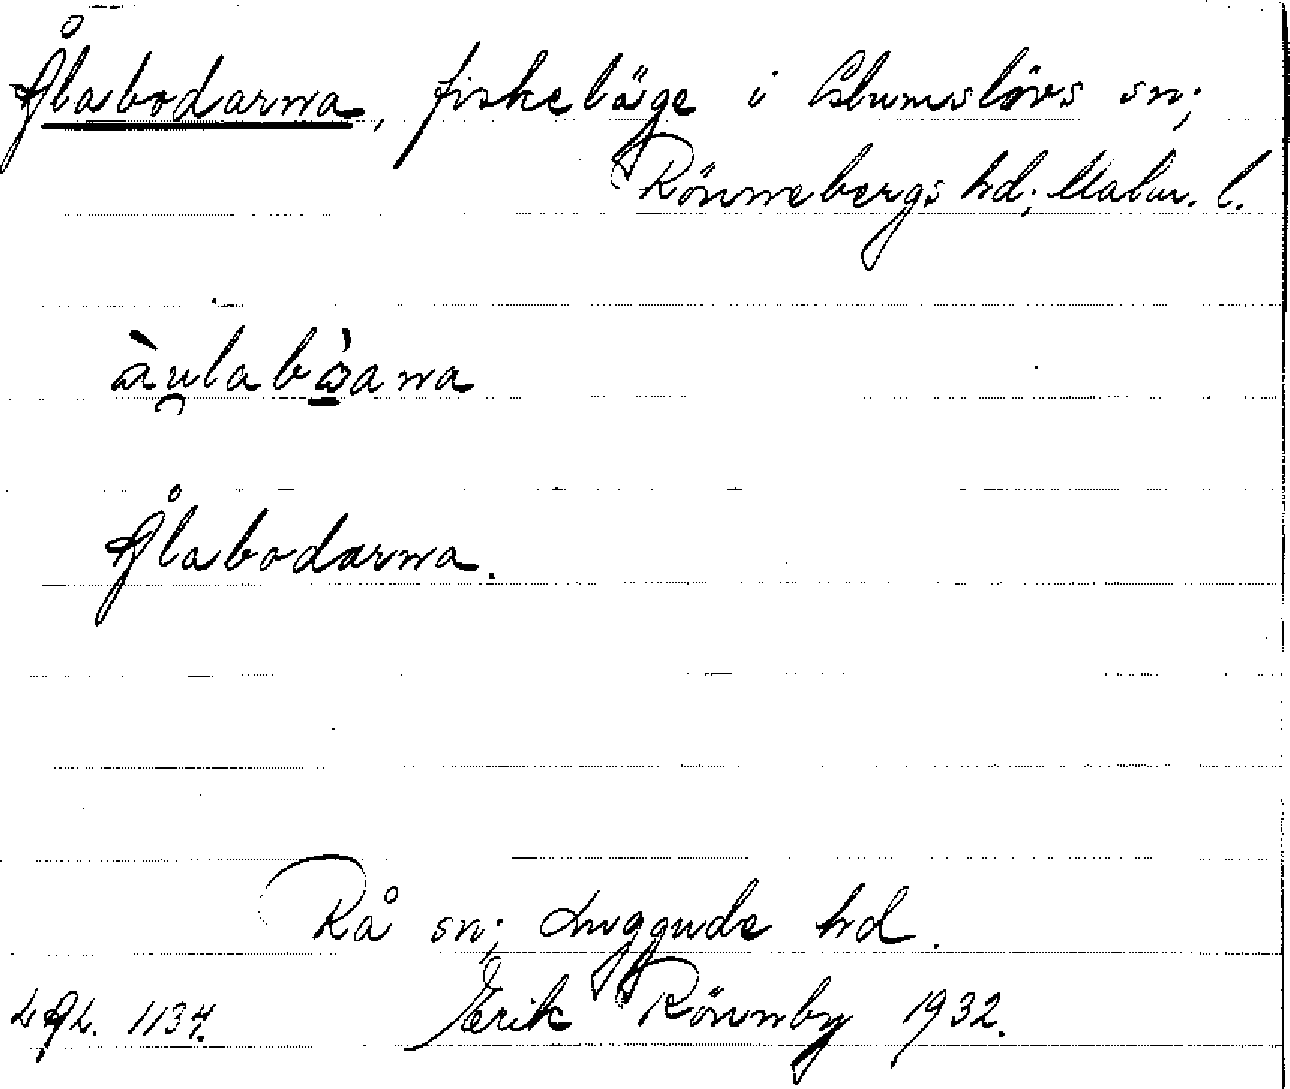 Ålabodarna, fiskeläge i Glumslövs sn;
Rönnebergs hd; Malm. l.
àu̯labὼ̱ana
Ålabodarna.
Rå sn; Luggude hd.
LAL. 1134. Erik Rönnby 1932.